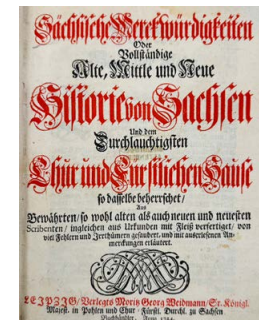 Sächsische Merckwürdigkeiten
Oder
Vollständige
Alte, Mittle und Neue
Historie von Sachsen
Und dem
Durchlauchtigsten
Chur und Fürstlichen Hause
so dasselbe beherrschet/
Aus
Bewährten/ so wohl alten als auch neuen und neuesten
Scribenten/ ingleichen aus Urkunden mit Fleiß verfertiget/ von
viel Fehlern und Irrthümern gesaubert, und mit auserlesenen An-
merckungen erläutert.
LEIPZIG/ Verlegts Moritz Georg Weidmann/ Sr. Königl.
Majest. in Pohlen und Chur-Fürstl. Durchl. zu Sachsen
Buchhändler,